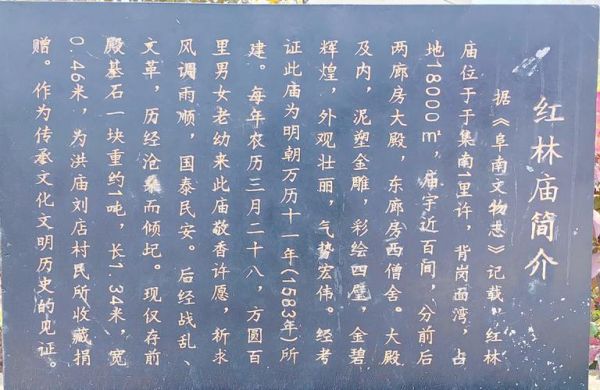 红林庙简介
据《阜南文物志》记载，红林
庙位于于集南1里许，背岗面湾，占
地18000㎡，庙宇近百间，分前后
两廊房大殿，东廊房西僧舍。大殿
及内，泥塑金雕，彩绘四壁，金碧
辉煌，外观壮丽，气势宏伟。经考
证此庙为明朝万历十一年(1583年)所
建。每年农历三月二十八，方圆百
里男女老幼来此庙敬香许愿，祈求
风调雨顺，国泰民安。后经战乱、
文革，历经沧桑而倾圮。现仅存前
殿基石一块重约1吨，长1.34米，宽
0.46米，为洪庙刘店村民所收藏捐
赠。作为传承文化文明历史的见证。